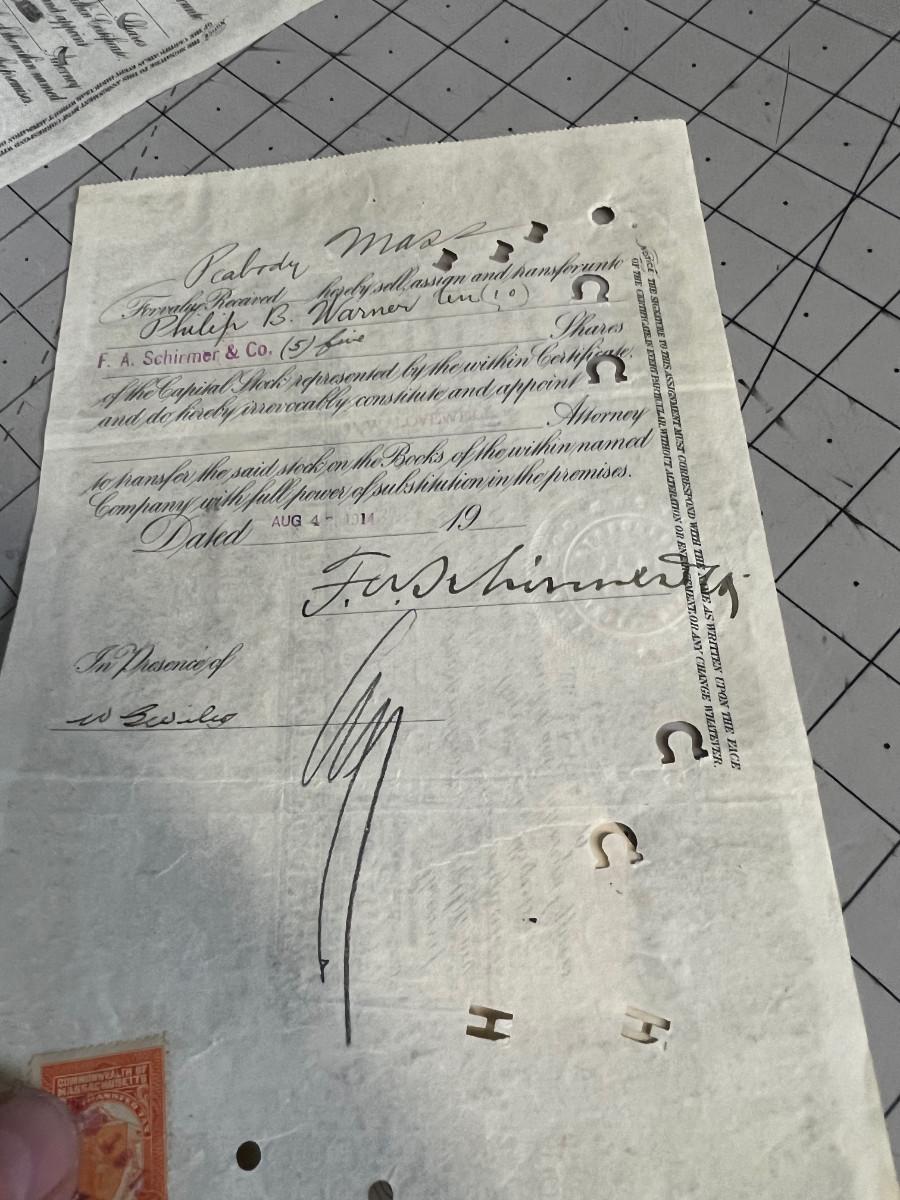 Peabody Mass
For value Received hereby sell, assign and transfer unto
Philip B. Warner ten (10)
Shares
F. A. Schirmer & Co. (5) five
of the Capital Stock represented by the within Certificate,
and do hereby irrevocably constitute and appoint
Attorney
to transfer the said stock on the Books of the within named
Company with full power of substitution in the premises.
Dated AUG 4 - 1914 19
F. A. Schirmer & Co.
In Presence of
NOTICE. THE SIGNATURE TO THIS ASSIGNMENT MUST CORRESPOND WITH THE NAME AS WRITTEN UPON THE FACE
OF THE CERTIFICATE IN EVERY PARTICULAR WITHOUT ALTERATION OR ENLARGEMENT, OR ANY CHANGE WHATEVER.
COMMONWEALTH OF
MASSACHUSETTS